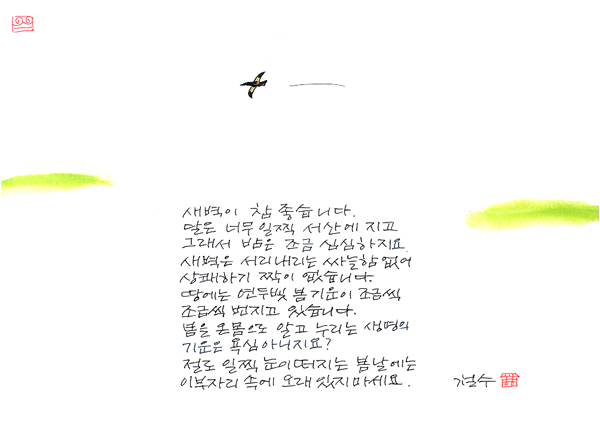 새벽이 참 좋습니다.
달은 너무 일찍 서산에 지고
그래서 밤은 조금 심심하지요.
새벽은 서리내리는 싸늘함 없어
상쾌하기 짝이 없습니다.
땅에는 연두빛 봄기운이 조금씩
조금씩 번지고 있습니다.
봄을 온몸으로 알고 누리는 생명의
기운은 욕심아니지요?
절로 일찍 눈이 떠지는 봄날에는
이부자리 속에 오래 있지마세요.
철수